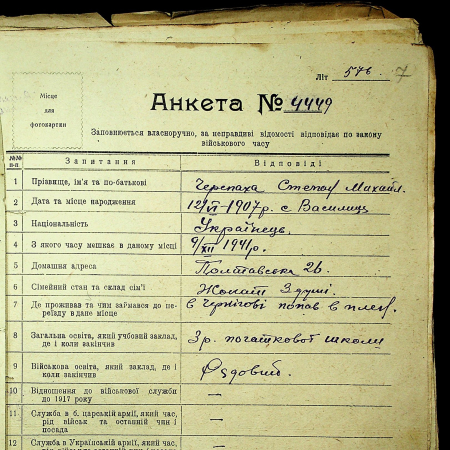 Літ 576. 7
Місце
для
фотокартки
Анкета № 4449
Заповнюється власноручно, за неправдиві відомості відповідає по закону
військового часу
№№
п-п.
Запитання Відповіді
1 Прізвище, ім'я та по-батькові Черепаха Степан Михайл.
2 Дата та місце народження 12/VI-1907р. с Василиць
3 Національність Українець.
4 З якого часу мешкає в даному місці 9/XII 1941р.
5 Домашня адреса Полтавська 26.
6 Сімейний стан та склад сім'ї Жонатий 3 душі.
7 Де проживав та чим займався до пе- в Чернігові попав в плен.
реїзду в дане місце
8 Загальна освіта, який учбовий заклад, 3 р. початкової школи
де і коли закінчив
9 Військова освіта, який заклад, де і Рядовий.
коли закінчив
10 Відношення до військової служби —
до 1917 року
11 Служба в б. царській армії, який час, —
рід військ та останній чин і
посада
12 Служба в Українській армії, який час, —